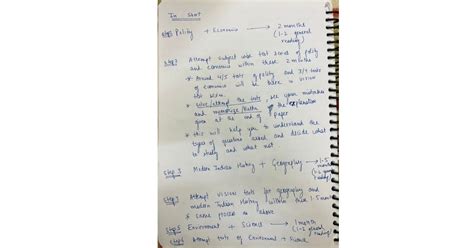 In Short
Step 1 Polity + Economics → 2 months
(1-2 general
reading)
Step 2 Attempt subject wise test series of polity
and economics within these 2 months
* Around 4/5 tests of polity and 3/4 tests
of economics will be there in vision
test series.
* Solve/attempt the tests, see your mistakes
and the explanation
given at the end of paper
* this will help you to understand the
types of questions asked and decide what
to study and what not
Step 3 Modern Indian History + Geography → 1.5
months
(1-2 general
reading)
Attempt vision tests for geography and
modern Indian History within this 1.5 months
* Same process as above
Step 5 Environment + Science → 1 month
(1-2 general
reading)
Step 6 Attempt tests of Environment + Science